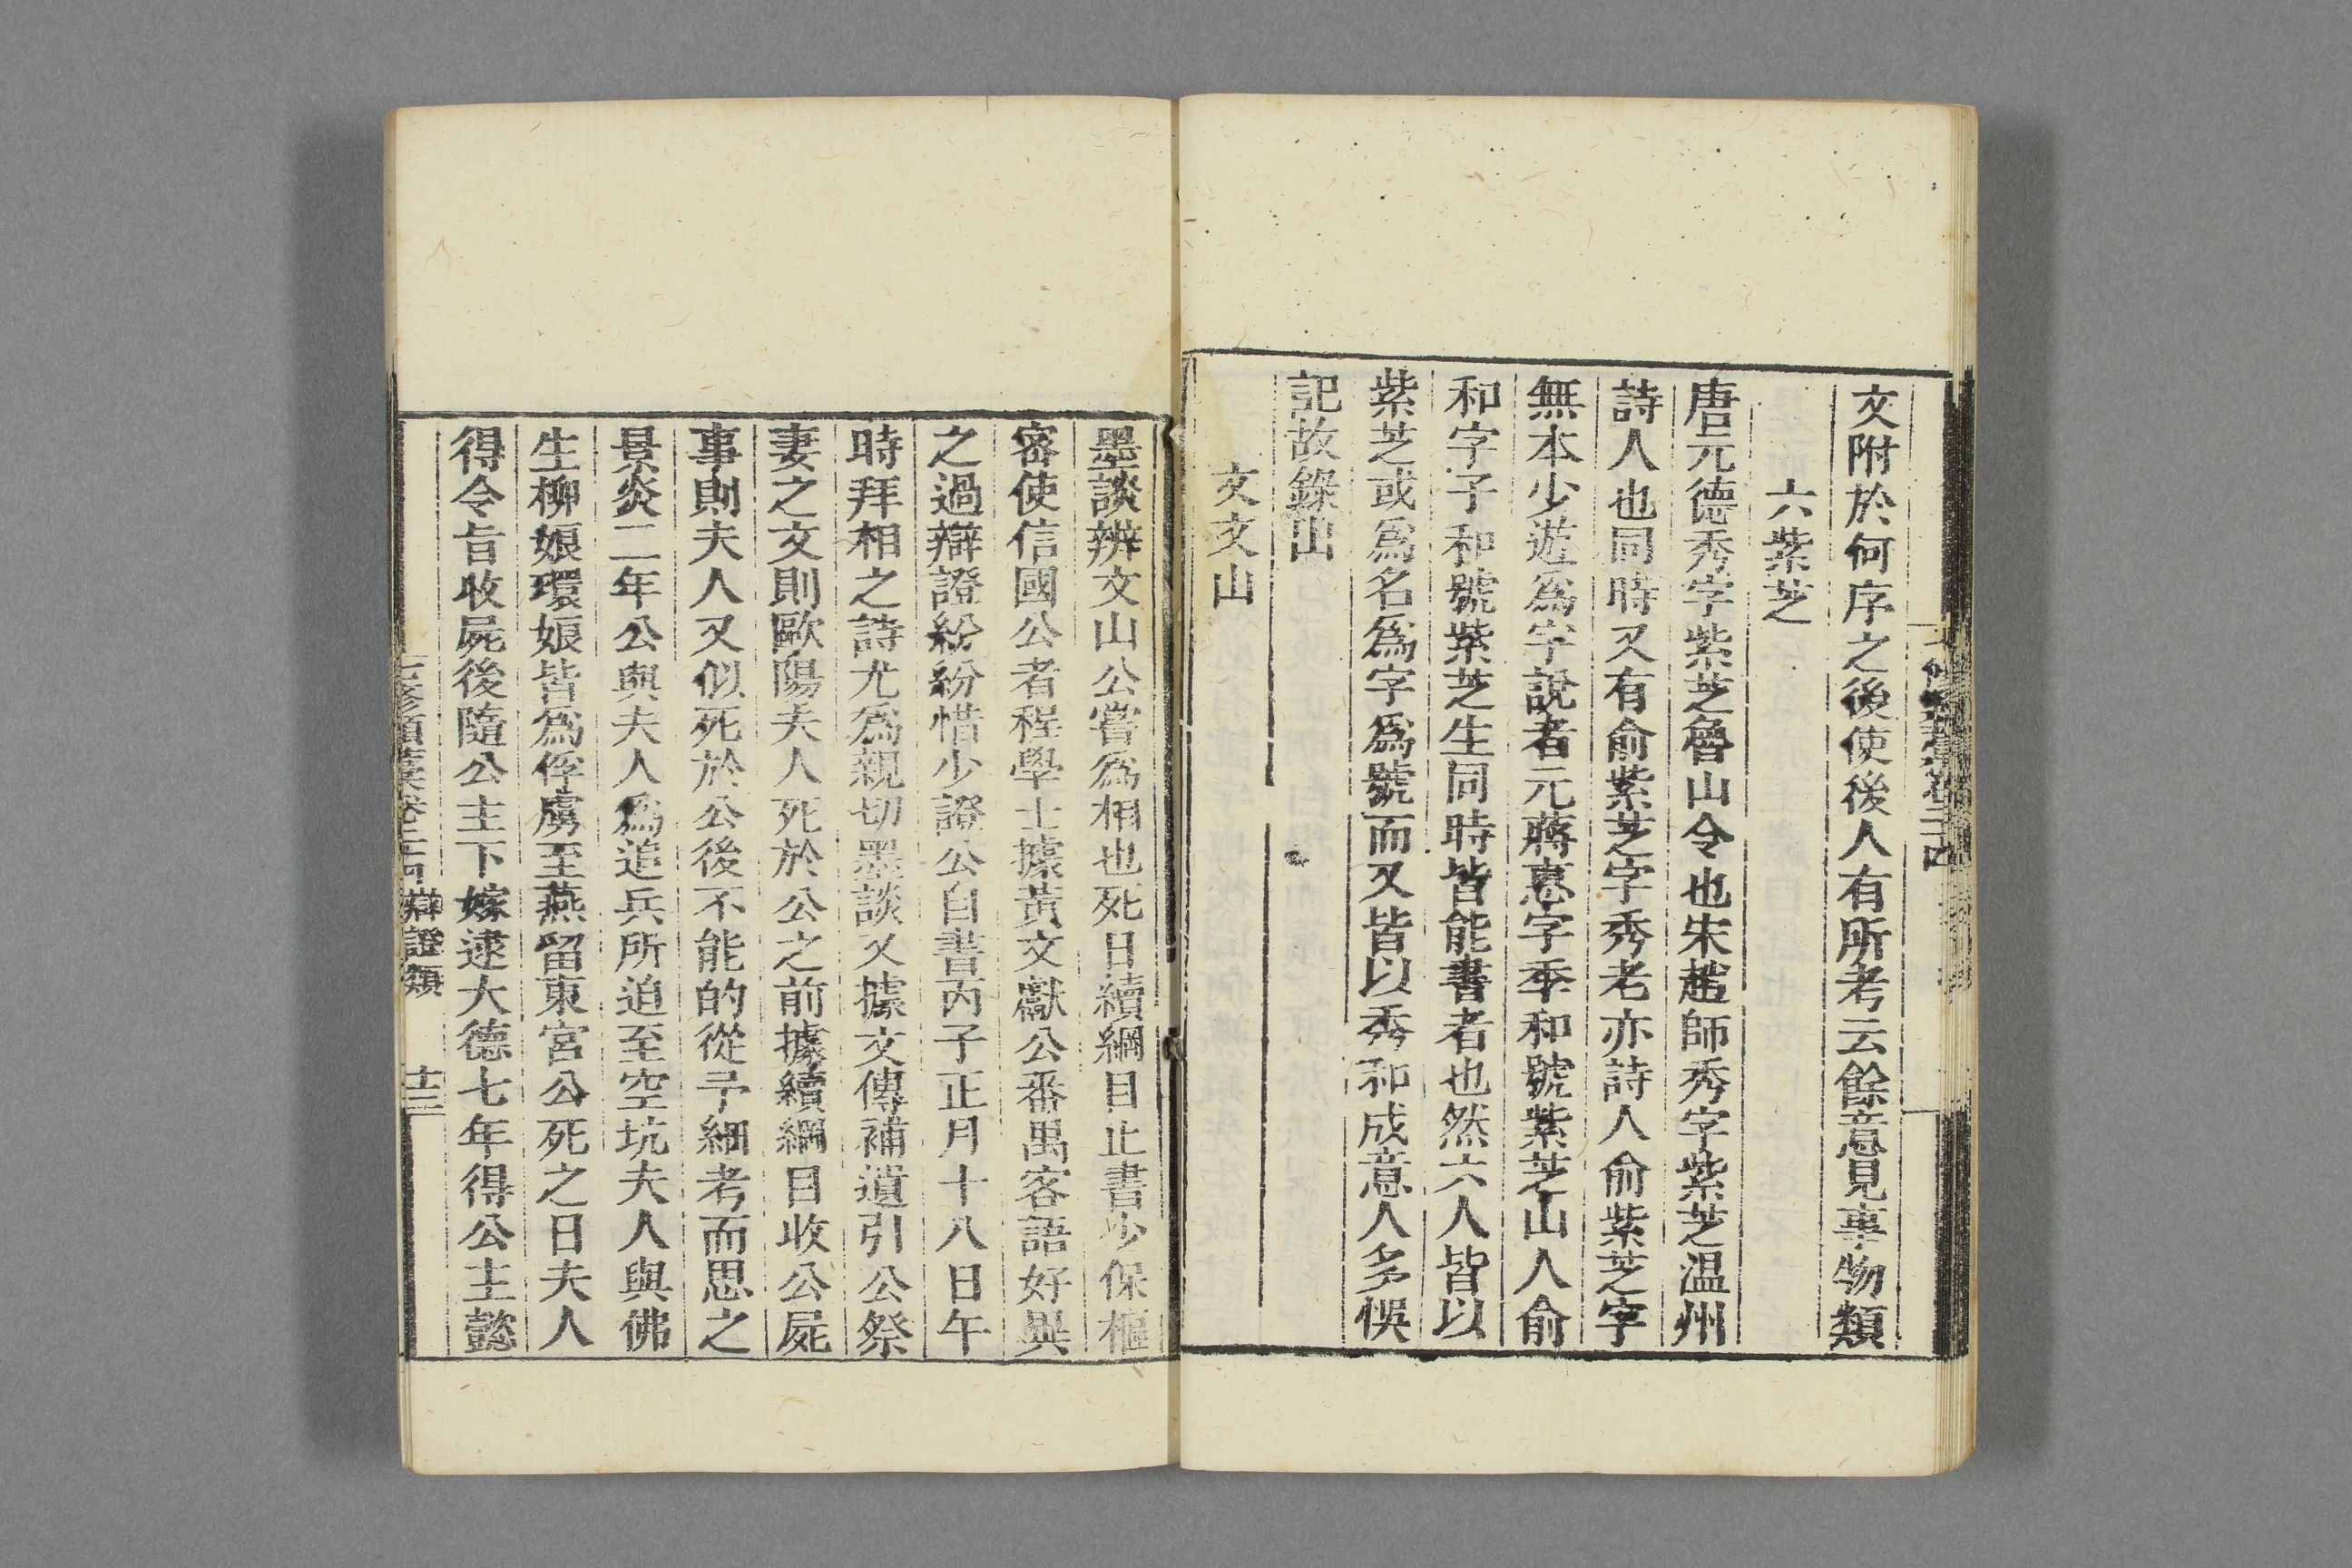 文附於何序之後使後人有所考云餘意見事物類
六紫芝
唐元德秀字紫芝魯山令也宋趙師秀字紫芝温州
詩人也同時又有俞紫芝字秀老亦詩人俞紫芝字
無本少遊爲字說者元蔣惠字季和號紫芝山人俞
和字子和號紫芝生同時皆能書者也然六人皆以
紫芝或爲名爲字爲號而又皆以秀和成意人多悞
記故錄出
文文山
墨談辨文山公嘗爲相也死日續綱目止書少保樞
密使信國公者程學士據黃文獻公番禺客語好異
之過辯證紛紛惜少證公自書丙子正月十八日午
時拜相之詩尤爲親切墨談又據文傳補遺引公祭
妻之文則歐陽夫人死於公之前據續綱目收公屍
事則夫人又似死於公後不能的從予細考而思之
景炎二年公與夫人爲追兵所迫至空坑夫人與佛
生柳娘環娘皆爲俘虜至燕留東宮公死之日夫人
得令旨收屍後隨公主下嫁逮大德七年得公主懿
七修類藁卷二十四 辯證類 十三